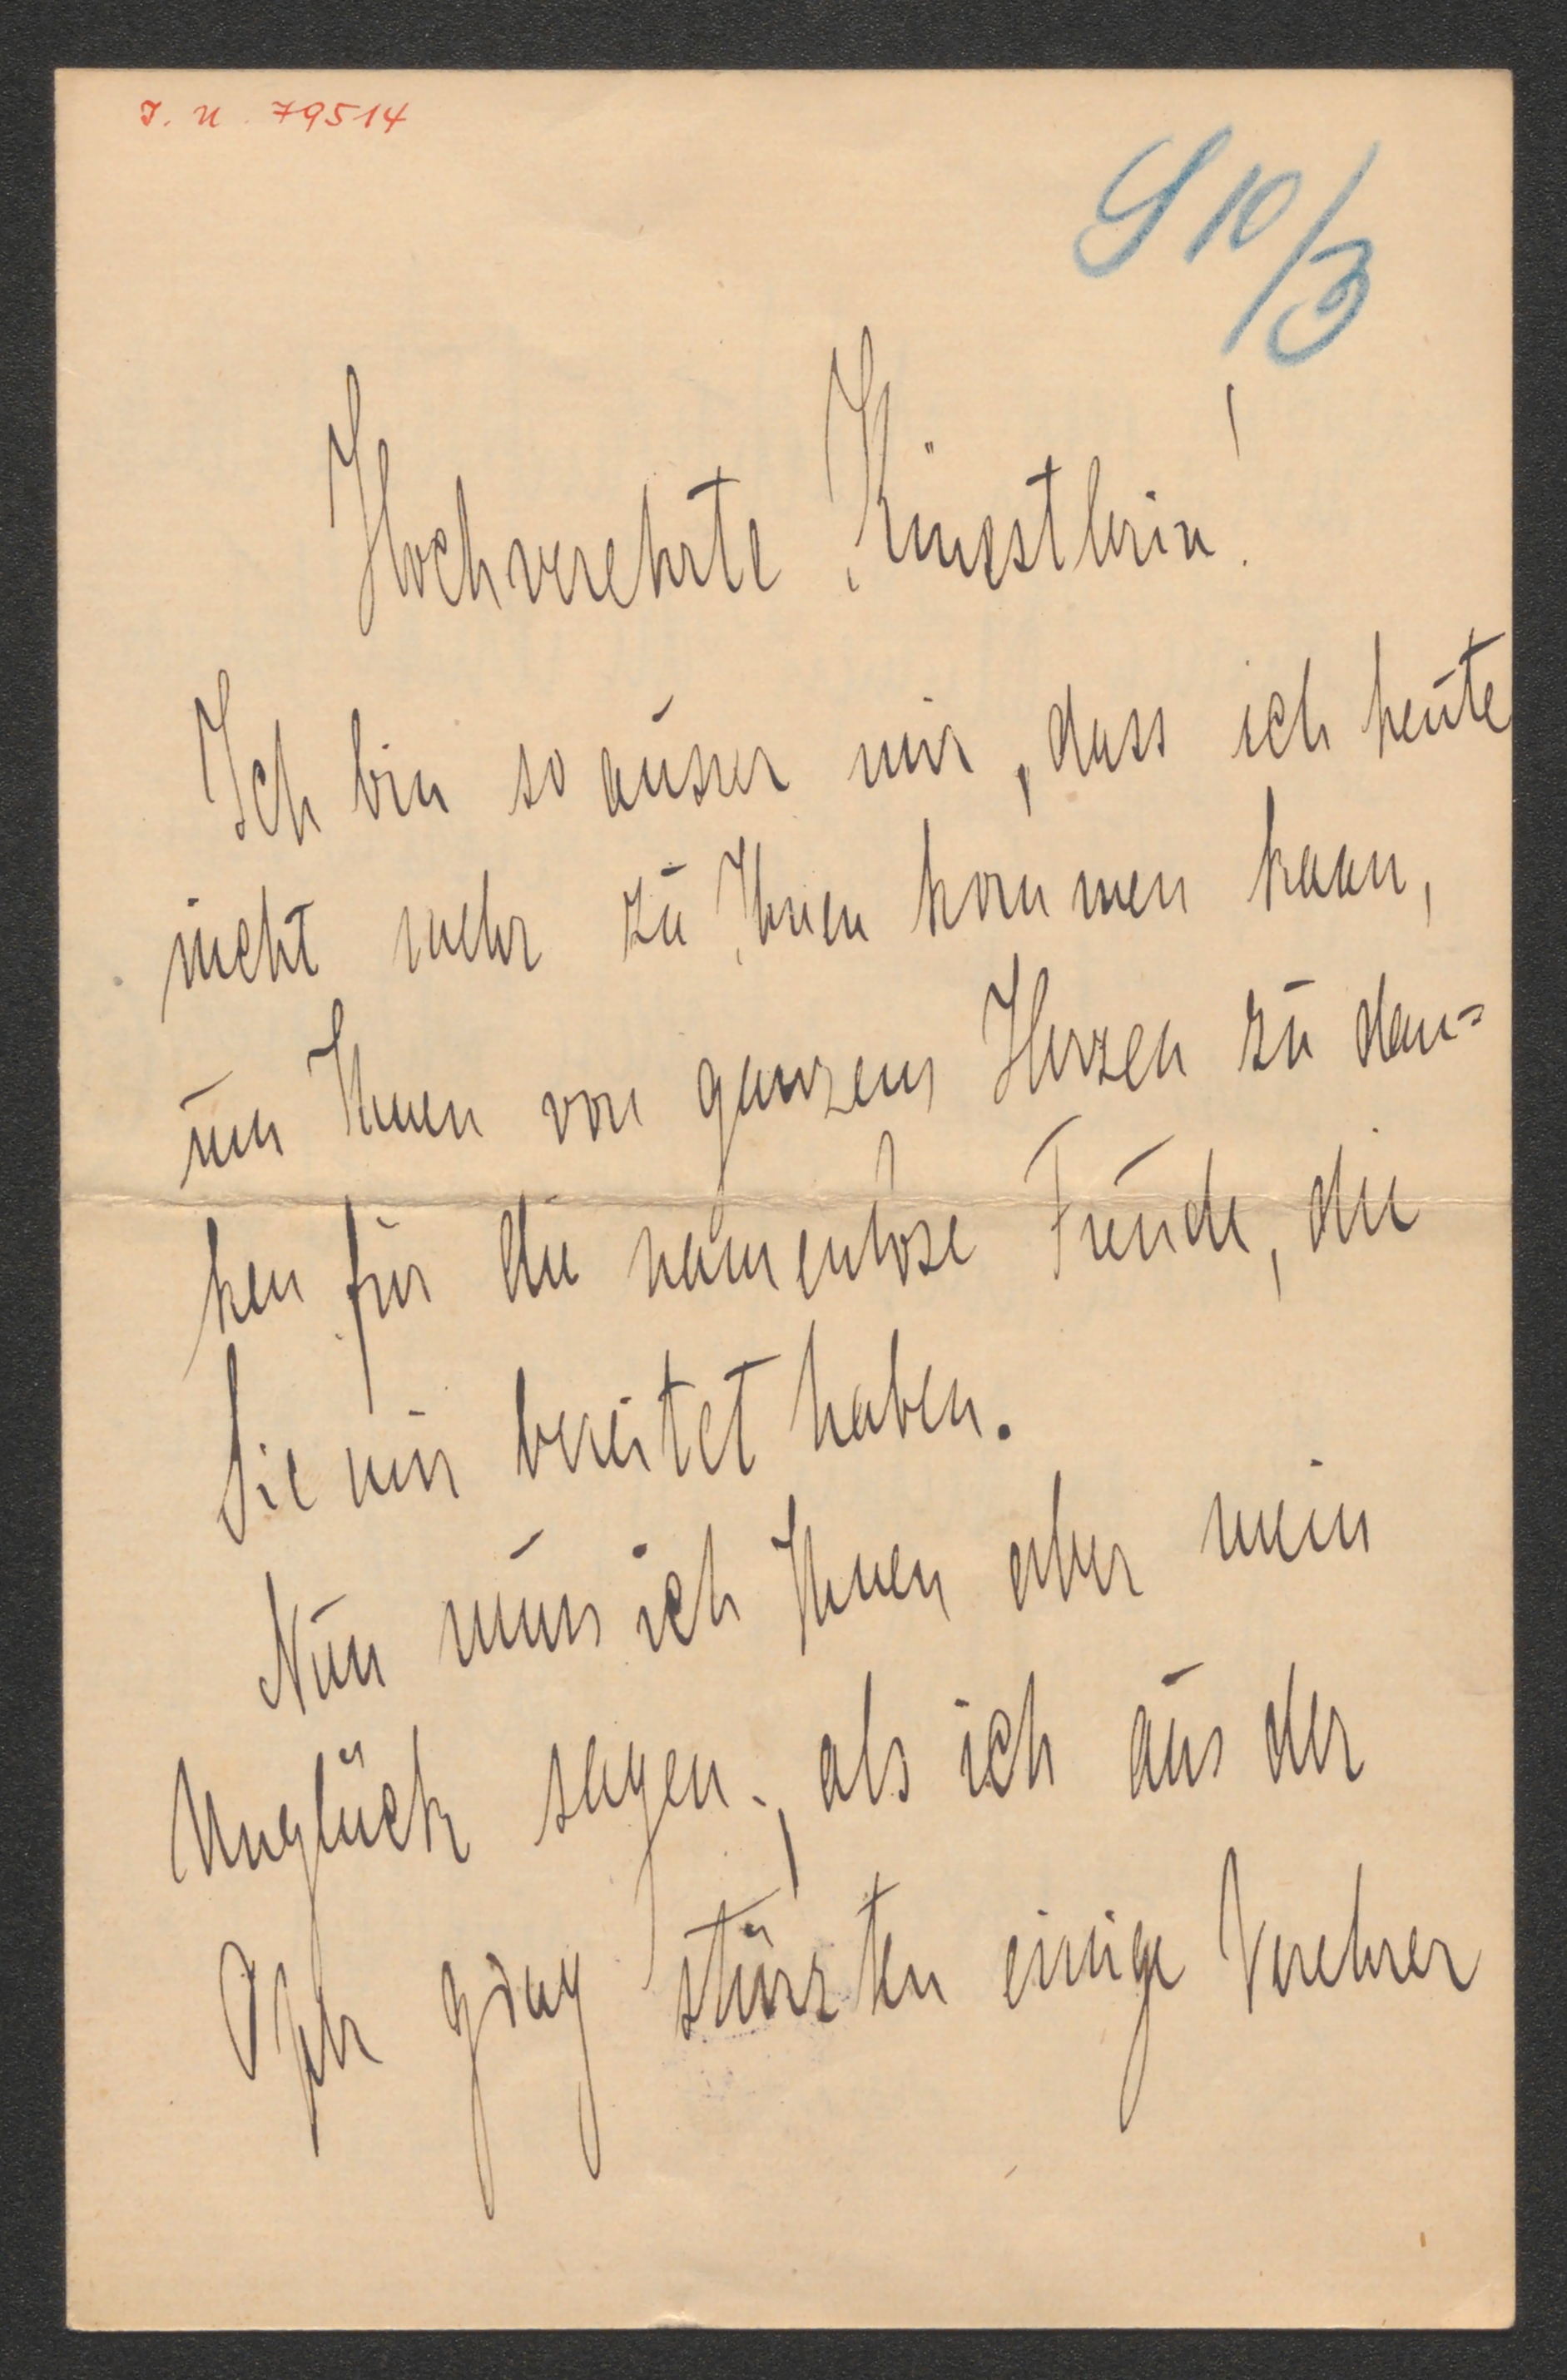 I. N. 79514
S 10/3
Hochverehrte Künstlerin!
Ich bin so ausser mir, dass ich heute
nicht mehr zu Ihnen kommen kann,
um Ihnen von ganzem Herzen zu dan=
ken für die namenlose Freude, die
Sie mir bereitet haben.
Nun muss ich Ihnen aber mein
Unglück sagen., als ich aus der
Oper ging stürzten einige Verehrer